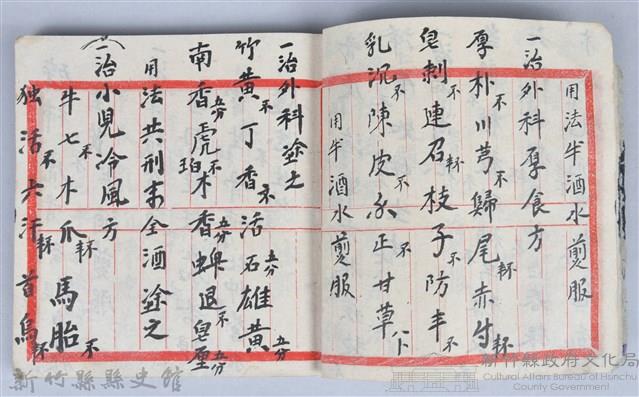 用法半酒水煎服
一治外科厚食方
厚朴不川芎不歸尾不赤勺杯
皂刺不連召杯枝子不防丰不
乳沉不陳皮不正不甘草八卜
用半酒水煎服
一治外科塗之
竹黃不丁香不活石五分雄黃五分
南香五分虎珀不木香五分蟬退不皂厘五分
用法共刑末全酒塗之
一治小児冷風方
牛七不木瓜杯馬胎不
独活不六汗杯首烏杯
新竹縣縣史館
新竹縣政府文化局
Cultural Affairs Bureau of Hsinchu
County Government